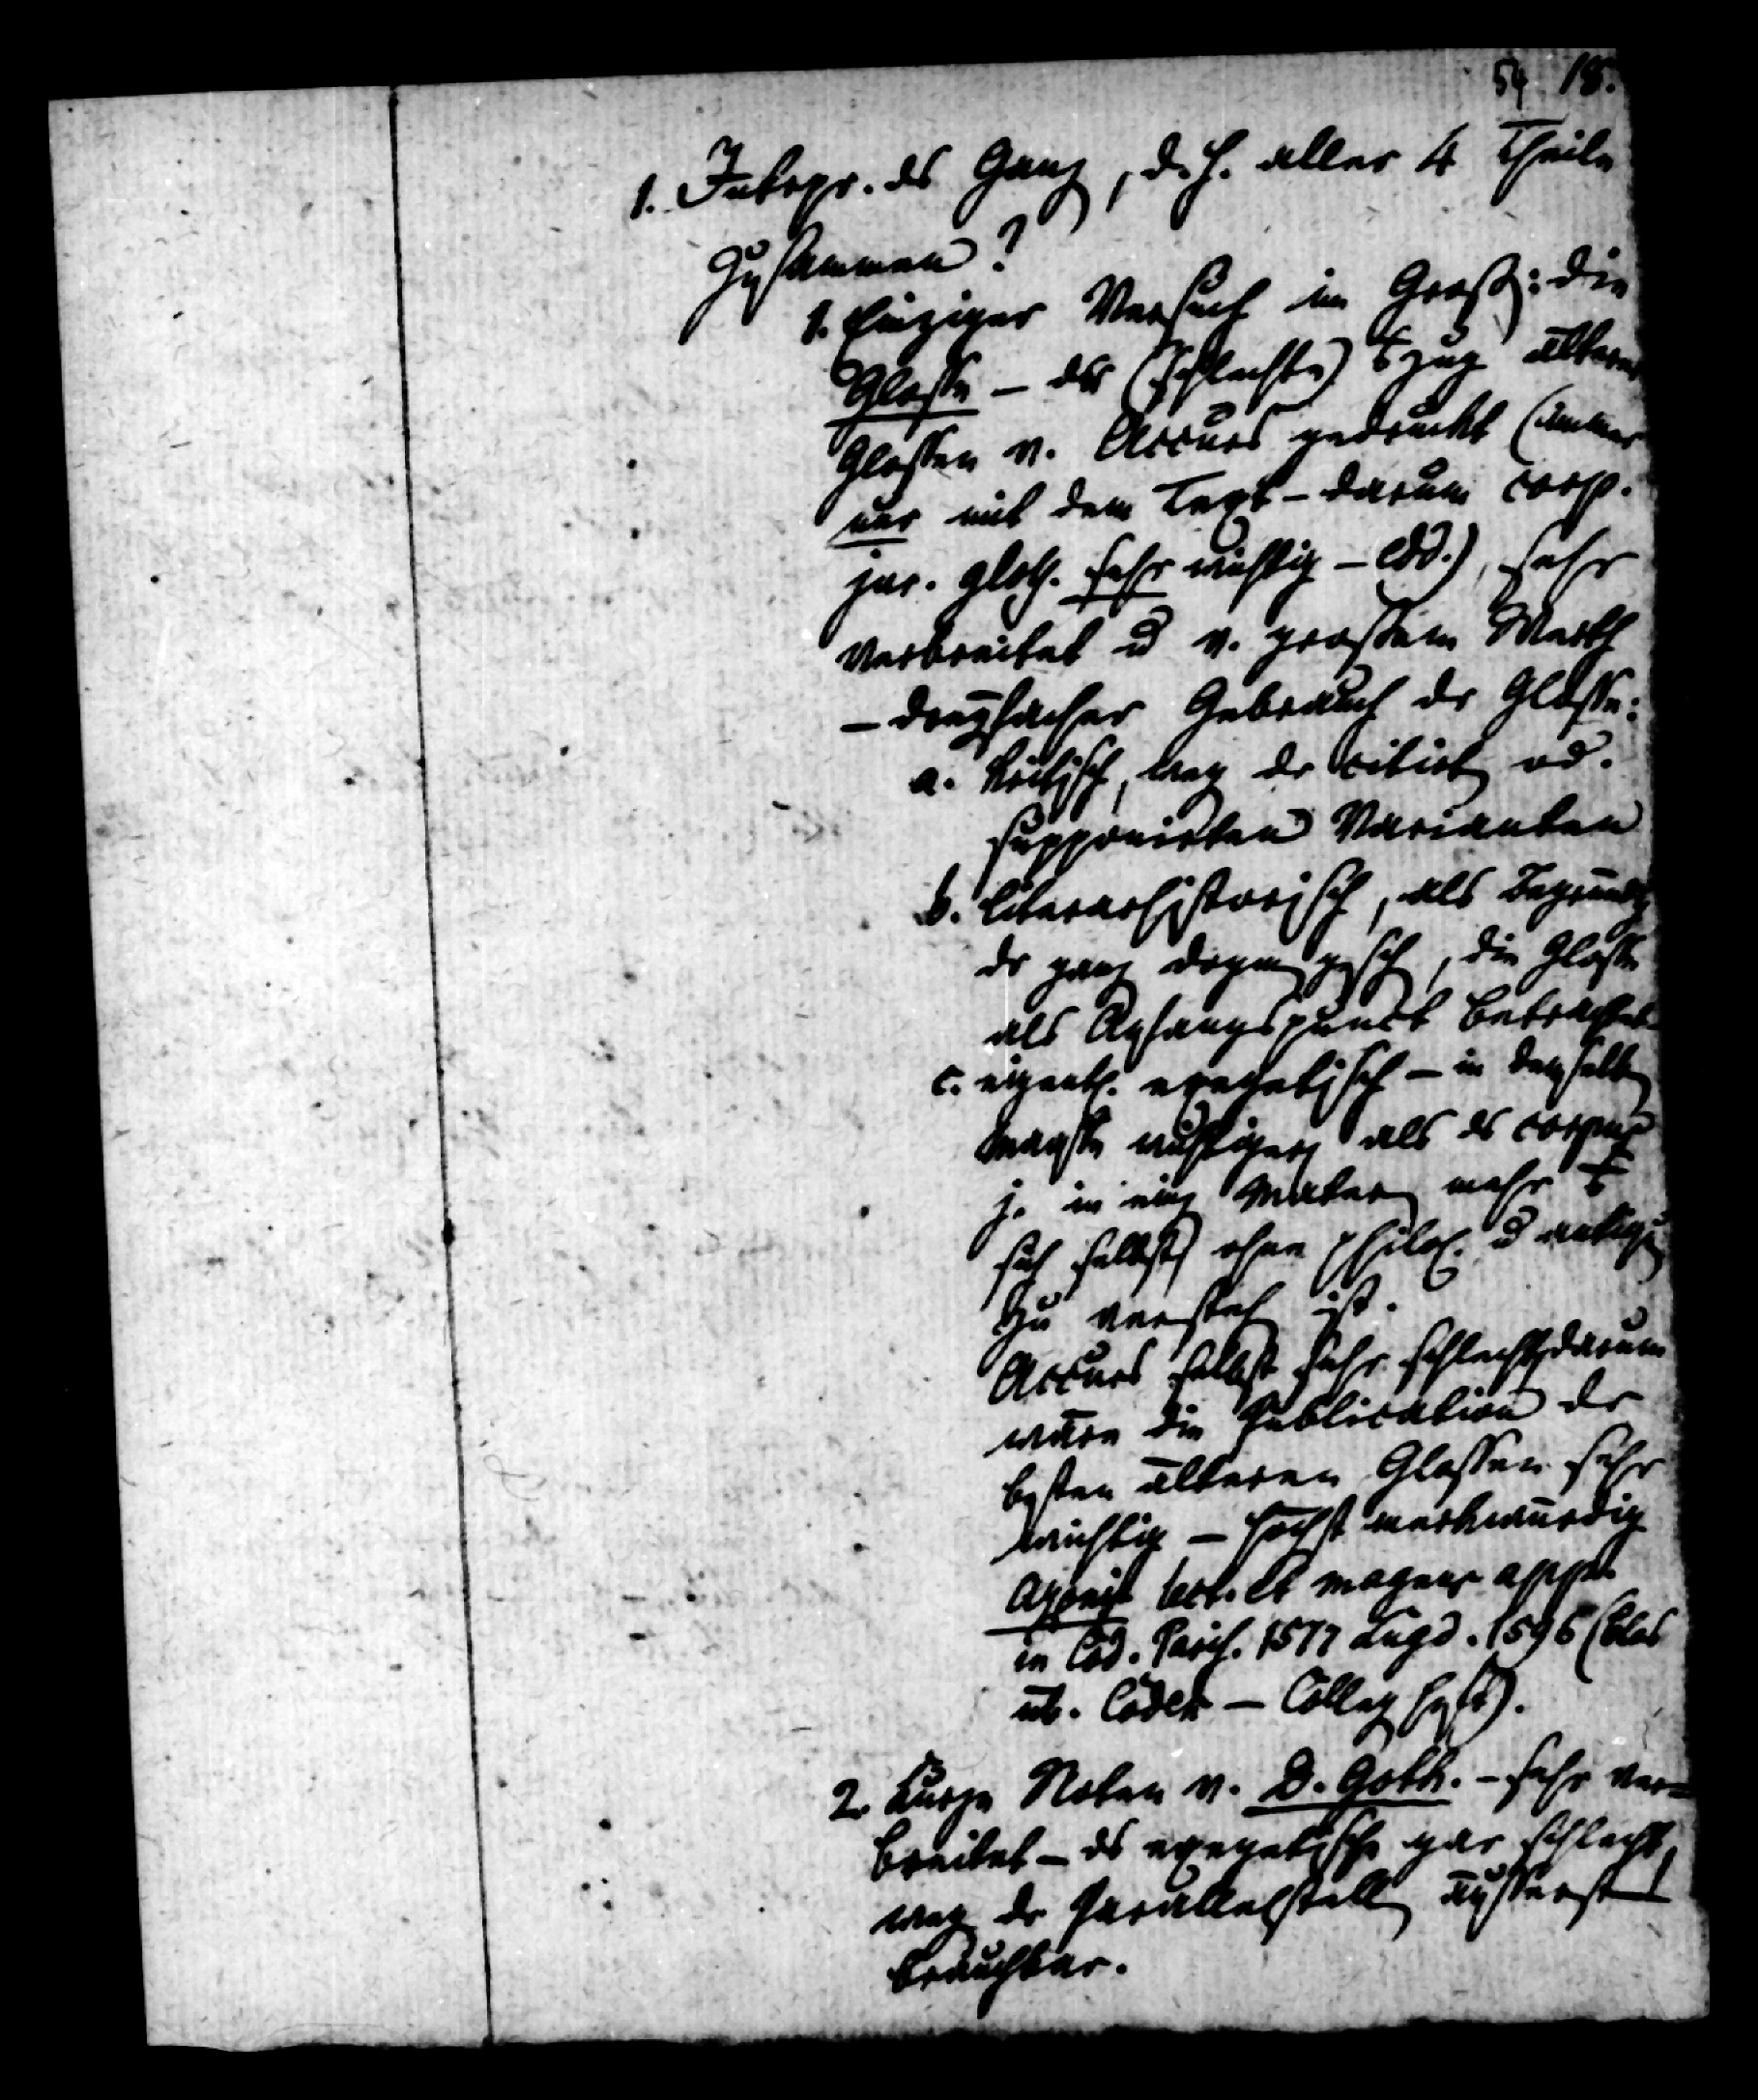 54 18.
1. Interpr. des Ganz, d. h. aller 4 Theile
zusammen?
1. Einziger Versuch im Groß: die
Glosse – der (schlechte) Auszug älterer
Glossen v. Accurs gedruckt (immer
nur mit dem Text – darum corp.
jur. gloss. sehr wichtig – edd.), sehr
verbreitet u v. großem Werth
– dreyfacher Gebrauch der Glosse:
a. kritisch, weg der citirt od.
supponirten Varianten
b. literarhistorisch, als Begründg
der ganz dogmengesch, die Glosse
als Anfangspunct betrachtet
c. eigentl. exegetisch – in demselb
wichtiger als das corpus
j. in einz Materien mehr
sich selbst ohne philol. u antiqu
zu versteh ist.
Accurs selbst sehr schlecht, darum
wäre die Publication der
besten älteren Glossen sehr
wichtig – höchst merkwürdig
Azonis lect. et magnus app.
in Cod. Paris. 1577 Lugd. 1596 (blos
üb. Codex – Collegheft).
2. Kurze Noten v. D. Goth. – sehr ver=
breitet – das exegetische gar schlecht,
weg der Parallelstell äusserst
brauchbar.